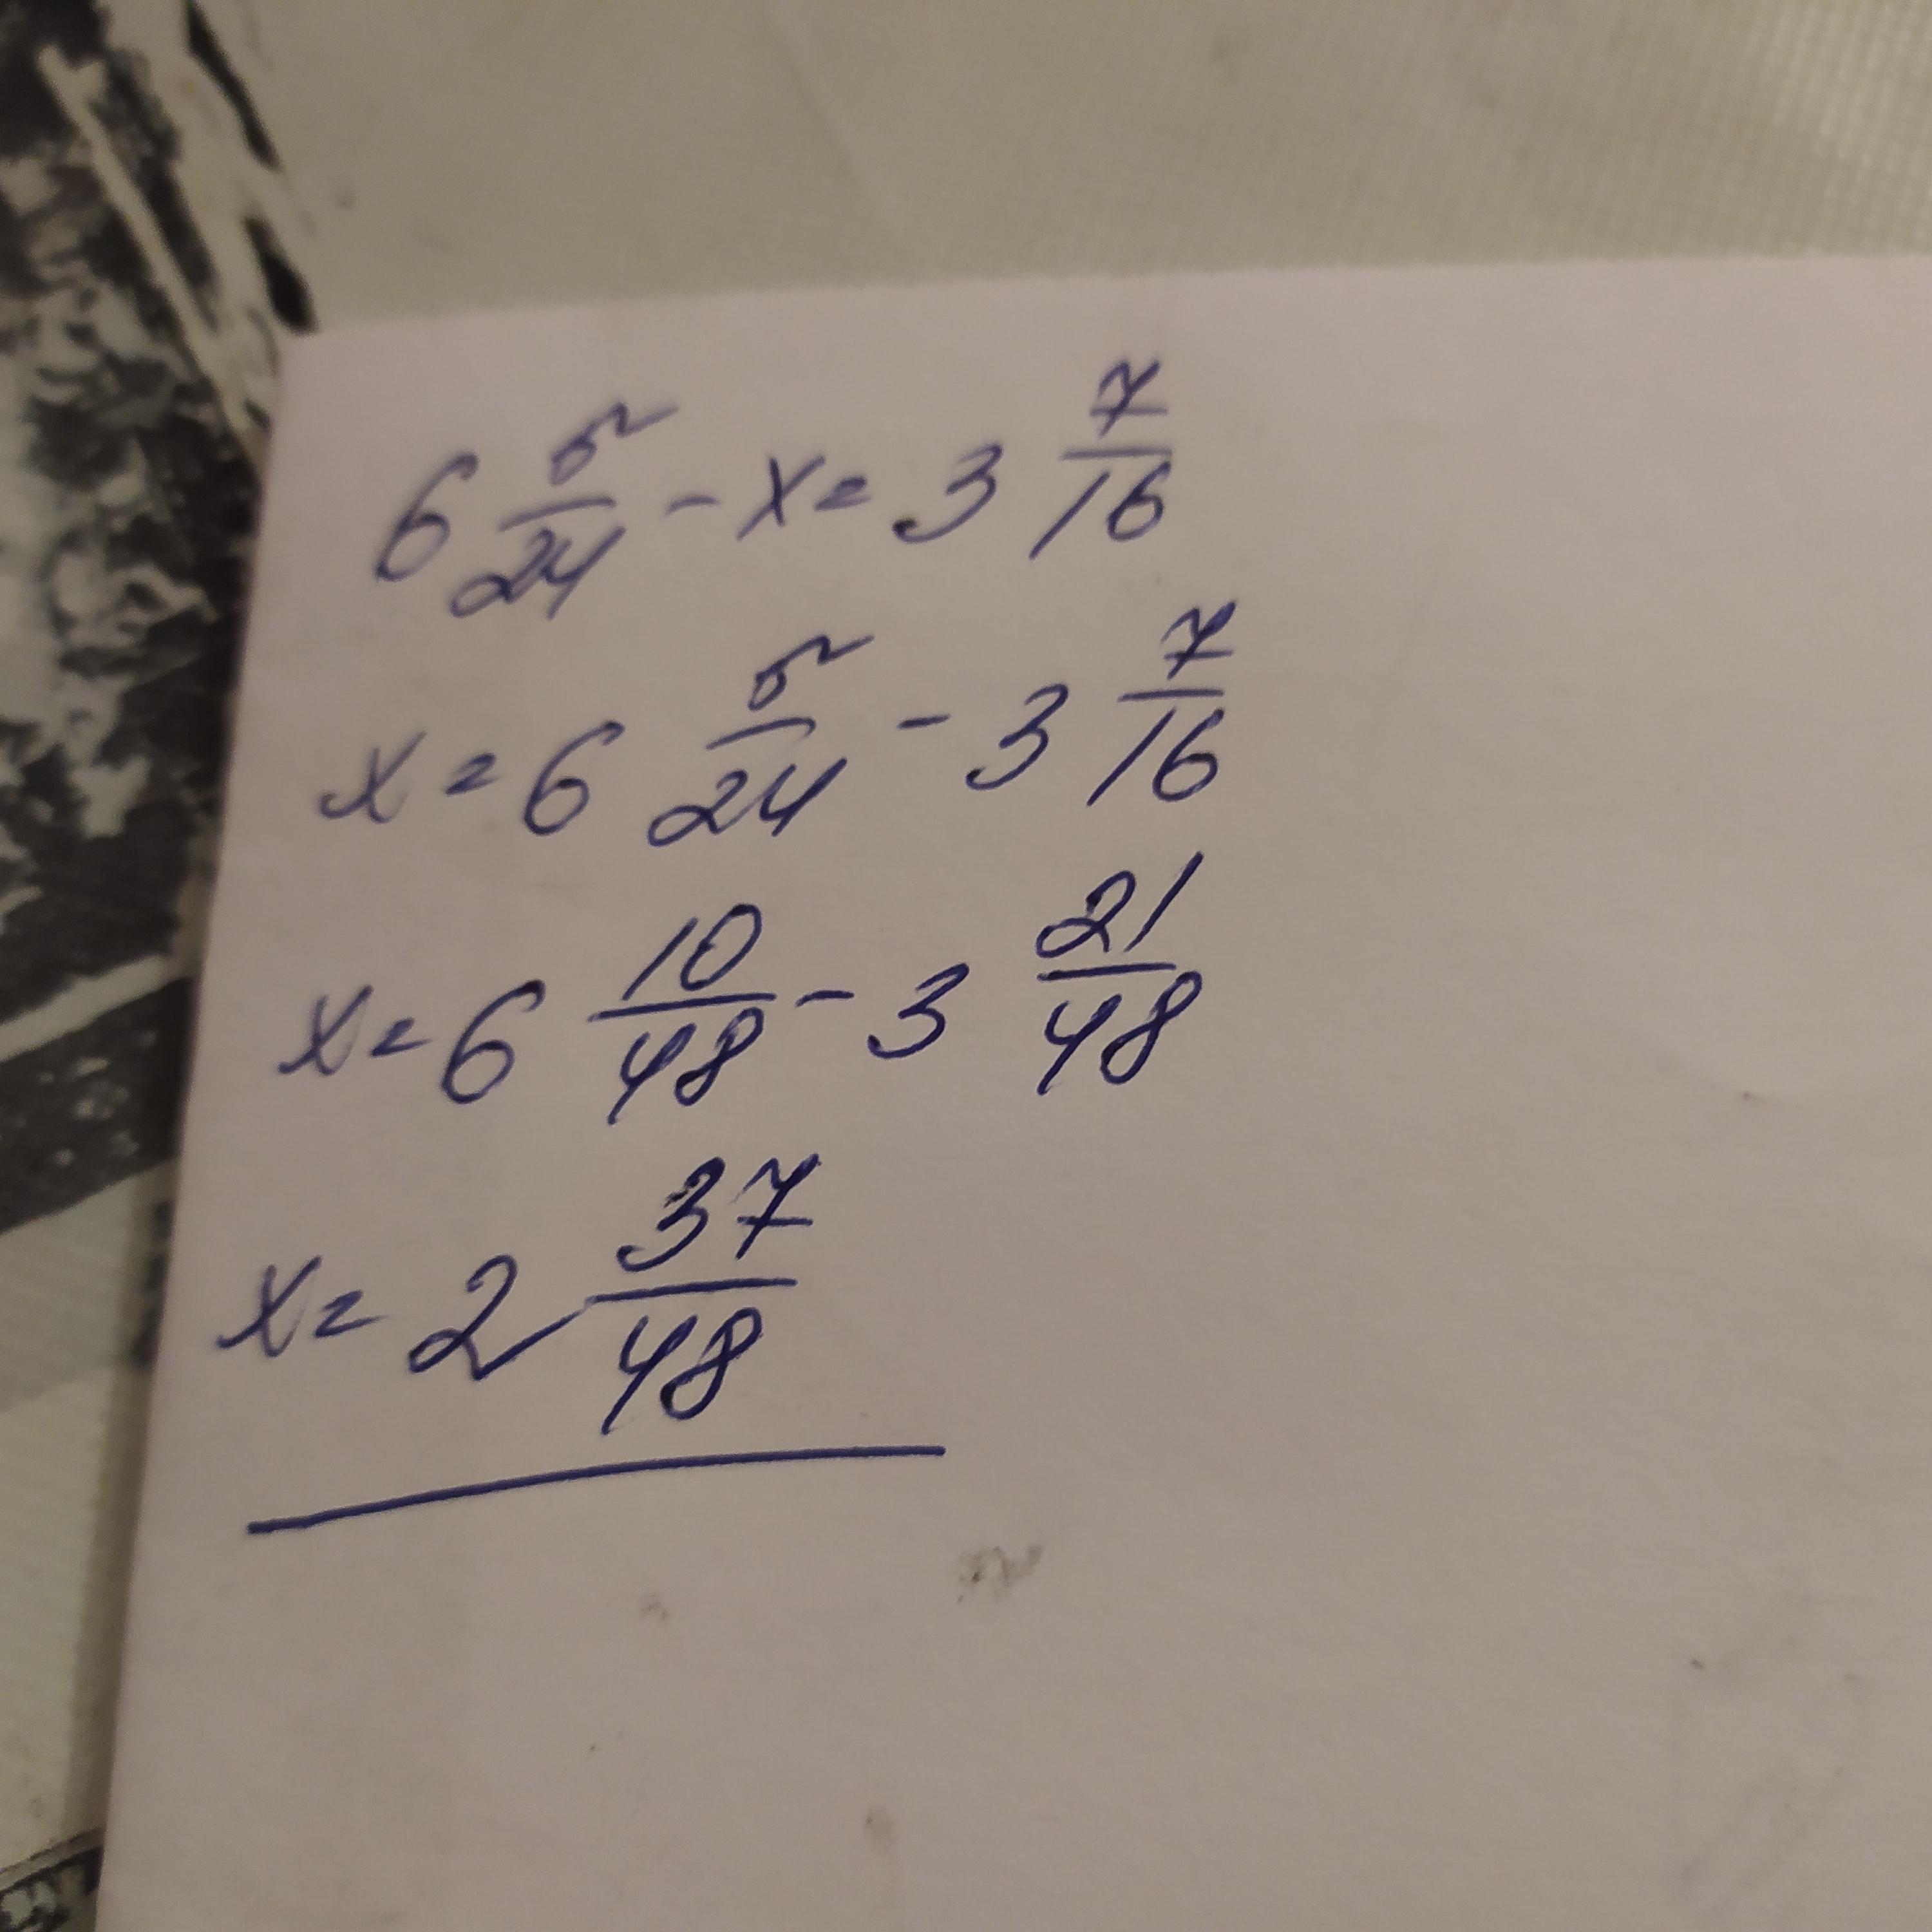 6 5/24 - x = 3 7/16
x = 6 5/24 - 3 7/16
x = 6 10/48 - 3 21/48
x = 2 37/48